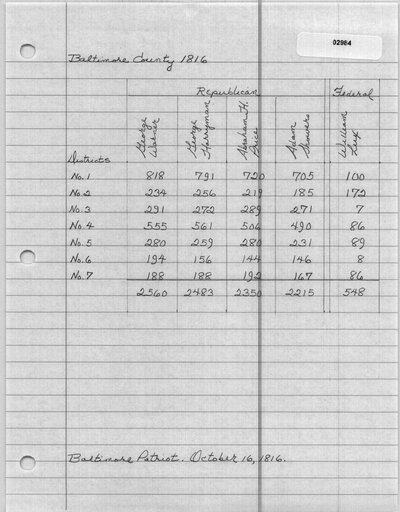 02984
Baltimore County 1816
Republican Federal
George Warner George Harryman Abraham H. Price Adam Showers William Lux
Districts
No. 1 818 791 720 705 100
No. 2 234 256 219 185 172
No. 3 291 272 289 271 7
No. 4 555 561 506 490 86
No. 5 280 259 280 231 89
No. 6 194 156 144 146 8
No. 7 188 188 192 167 86
2560 2483 2350 2215 548
Baltimore Patriot. October 16, 1816.